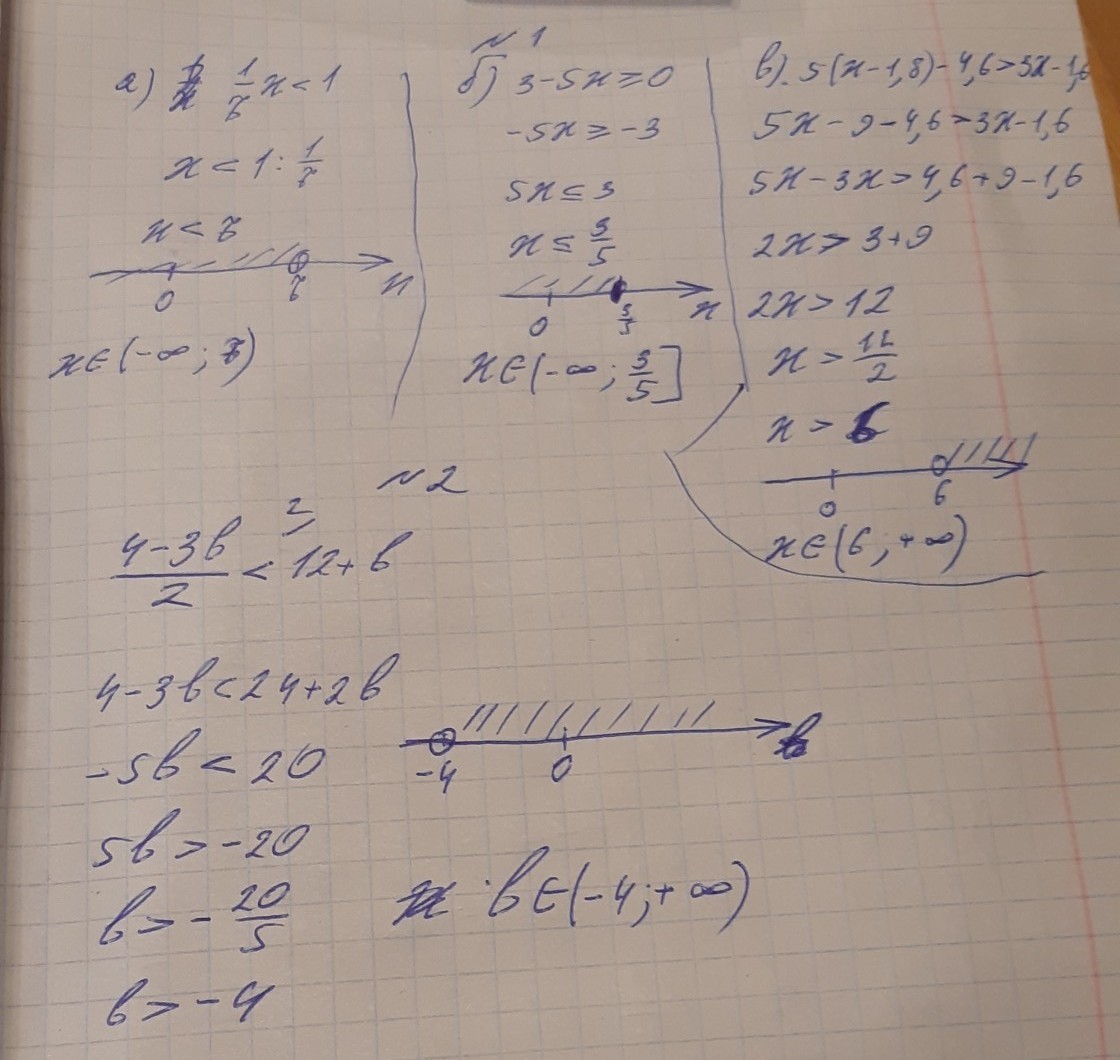 N 1
а) 1/7x < 1
x < 1 : 1/7
x < 7
0 7 x
x ∈ (-∞; 7)
б) 3-5x ≥ 0
-5x ≥ -3
5x ≤ 3
x ≤ 3/5
0 3/5 x
x ∈ (-∞; 3/5]
в). 5(x-1,8)-4,6>3x-1,6
5x-9-4,6>3x-1,6
5x-3x>4,6+9-1,6
2x > 3+9
2x > 12
x > 12/2
x > 6
0 6
x ∈ (6; +∞)
N 2
(4-3b)/2 < 12+b
2
4-3b<24+2b
-5b < 20
5b > -20
b > -20/5
b > -4
-4 0 b
b ∈ (-4; +∞)